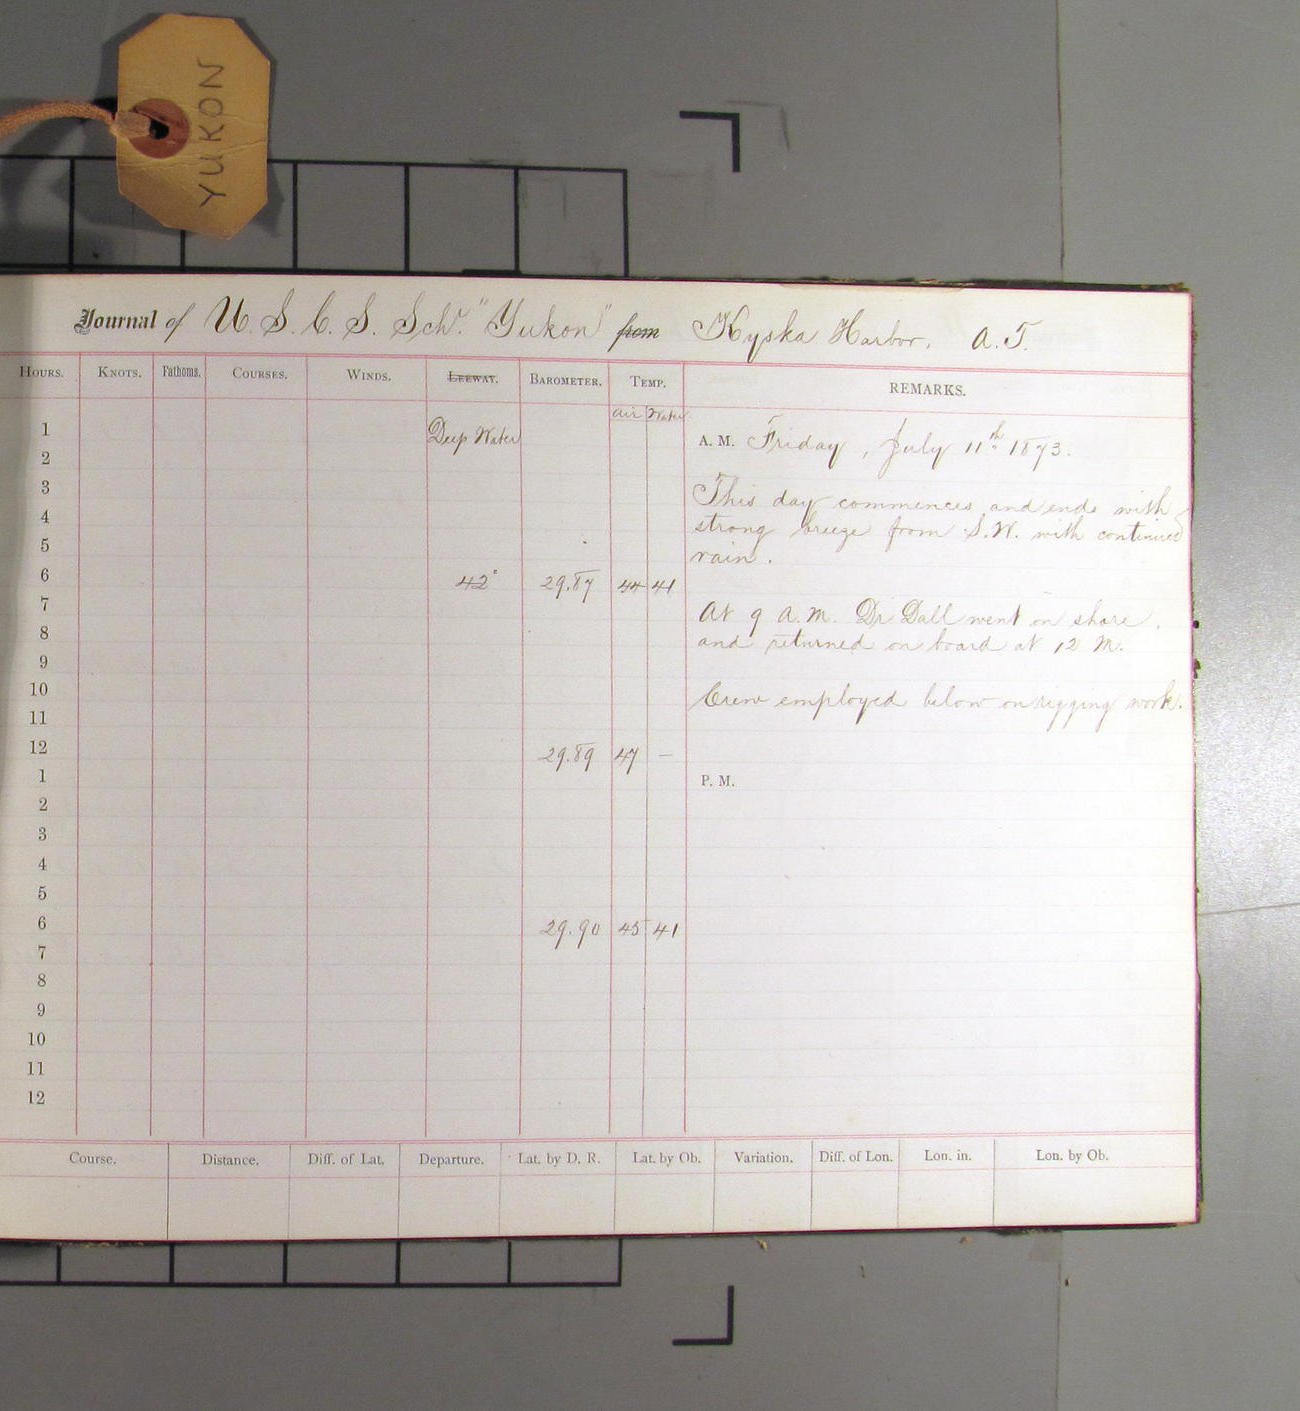 YUKON
Journal of U. S. C. S. Schr. "Yukon" from Kyska Harbor. A. T.
HOURS. KNOTS. Fathoms. COURSES. WINDS. LEEWAY. BAROMETER. TEMP. REMARKS.
Air Water
1 Deep Water A. M. Friday, July 11th 1873.
2
3 This day commences and ends with
4 strong breeze from S.W. with continued
5 rain.
6 42° 29.87 44 41
7 At 9 A.M. Dr Dall went on shore
8 and returned on board at 12 M.
9
10 Crew employed below on rigging work.
11
12 29.89 47 —
1 P. M.
2
3
4
5
6 29.90 45 41
7
8
9
10
11
12
Course. Distance. Diff. of Lat. Departure. Lat. by D. R. Lat. by Ob. Variation. Diff. of Lon. Lon. in. Lon. by Ob.